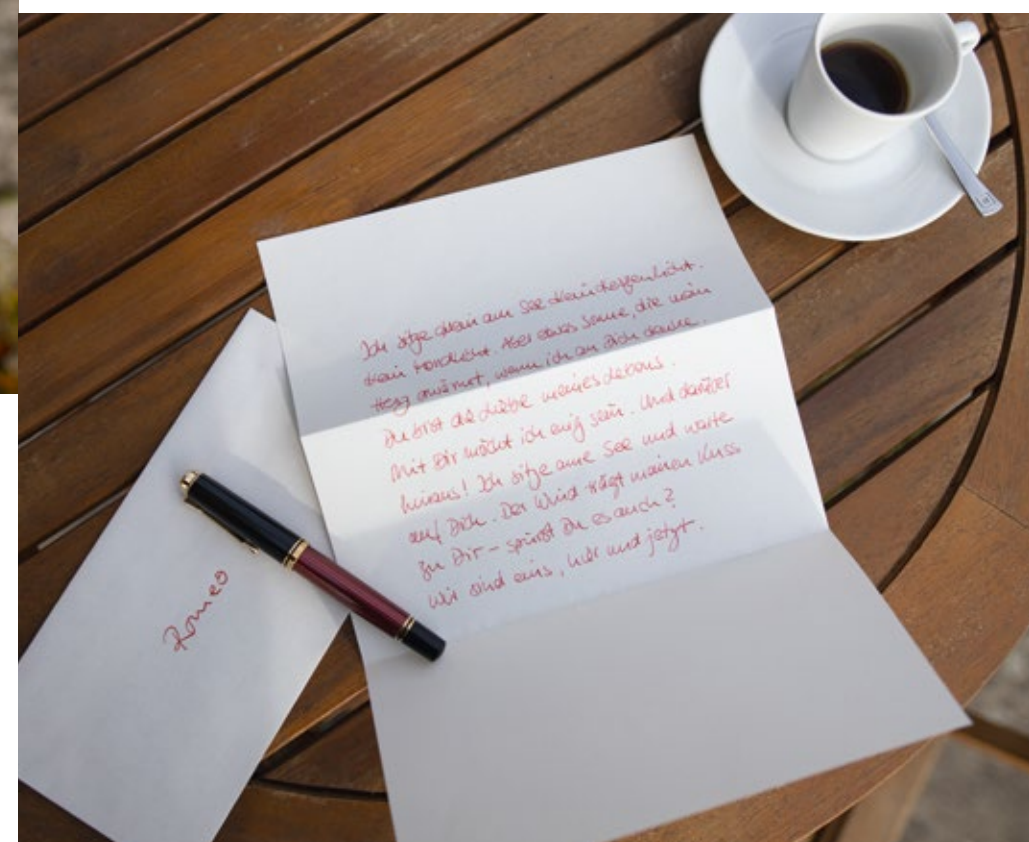 Ich sitze allein am See. Kein Kerzenlicht.
Kein Mondlicht. Aber etwas Sonne, die mein
Herz erwärmt, wenn ich an Dich denke.
Du bist die Liebe meines Lebens.
Mit Dir möcht ich ewig sein. Und darüber
hinaus! Ich sitze am See und warte
auf Dich. Der Wind trägt meinen Kuss
zu Dir – spürst Du es auch?
Wir sind eins, hier und jetzt.
Romeo